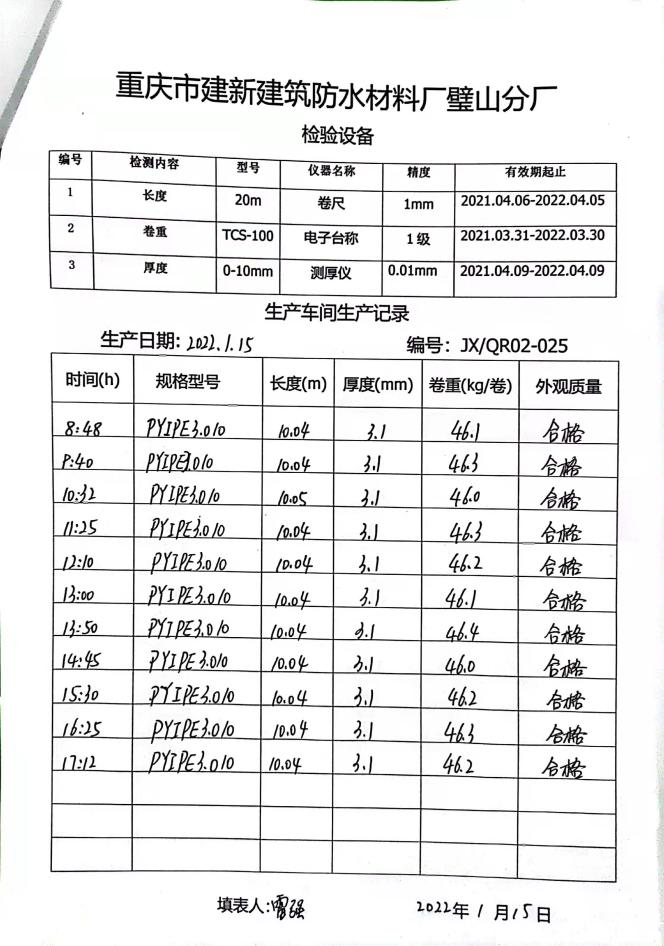 重庆市建新建筑防水材料厂璧山分厂
检验设备
编号 检测内容 型号 仪器名称 精度 有效期起止
1 长度 20m 卷尺 1mm 2021.04.06-2022.04.05
2 卷重 TCS-100 电子台称 1级 2021.03.31-2022.03.30
3 厚度 0-10mm 测厚仪 0.01mm 2021.04.09-2022.04.09
生产车间生产记录
生产日期: 2022.1.15 编号: JX/QR02-025
时间(h) 规格型号 长度(m) 厚度(mm) 卷重(kg/卷) 外观质量
8:48 PYIPE3.010 10.04 3.1 46.1 合格
9:40 PYIPE3.010 10.04 3.1 46.3 合格
10:32 PYIPE3.010 10.05 3.1 46.0 合格
11:25 PYIPE3.010 10.04 3.1 46.3 合格
12:10 PYIPE3.010 10.04 3.1 46.2 合格
13:00 PYIPE3.010 10.04 3.1 46.1 合格
13:50 PYIPE3.010 10.04 3.1 46.4 合格
14:45 PYIPE3.010 10.04 3.1 46.0 合格
15:30 PYIPE3.010 10.04 3.1 46.2 合格
16:25 PYIPE3.010 10.04 3.1 46.3 合格
17:12 PYIPE3.010 10.04 3.1 46.2 合格
填表人: 雷强 2022年1月15日